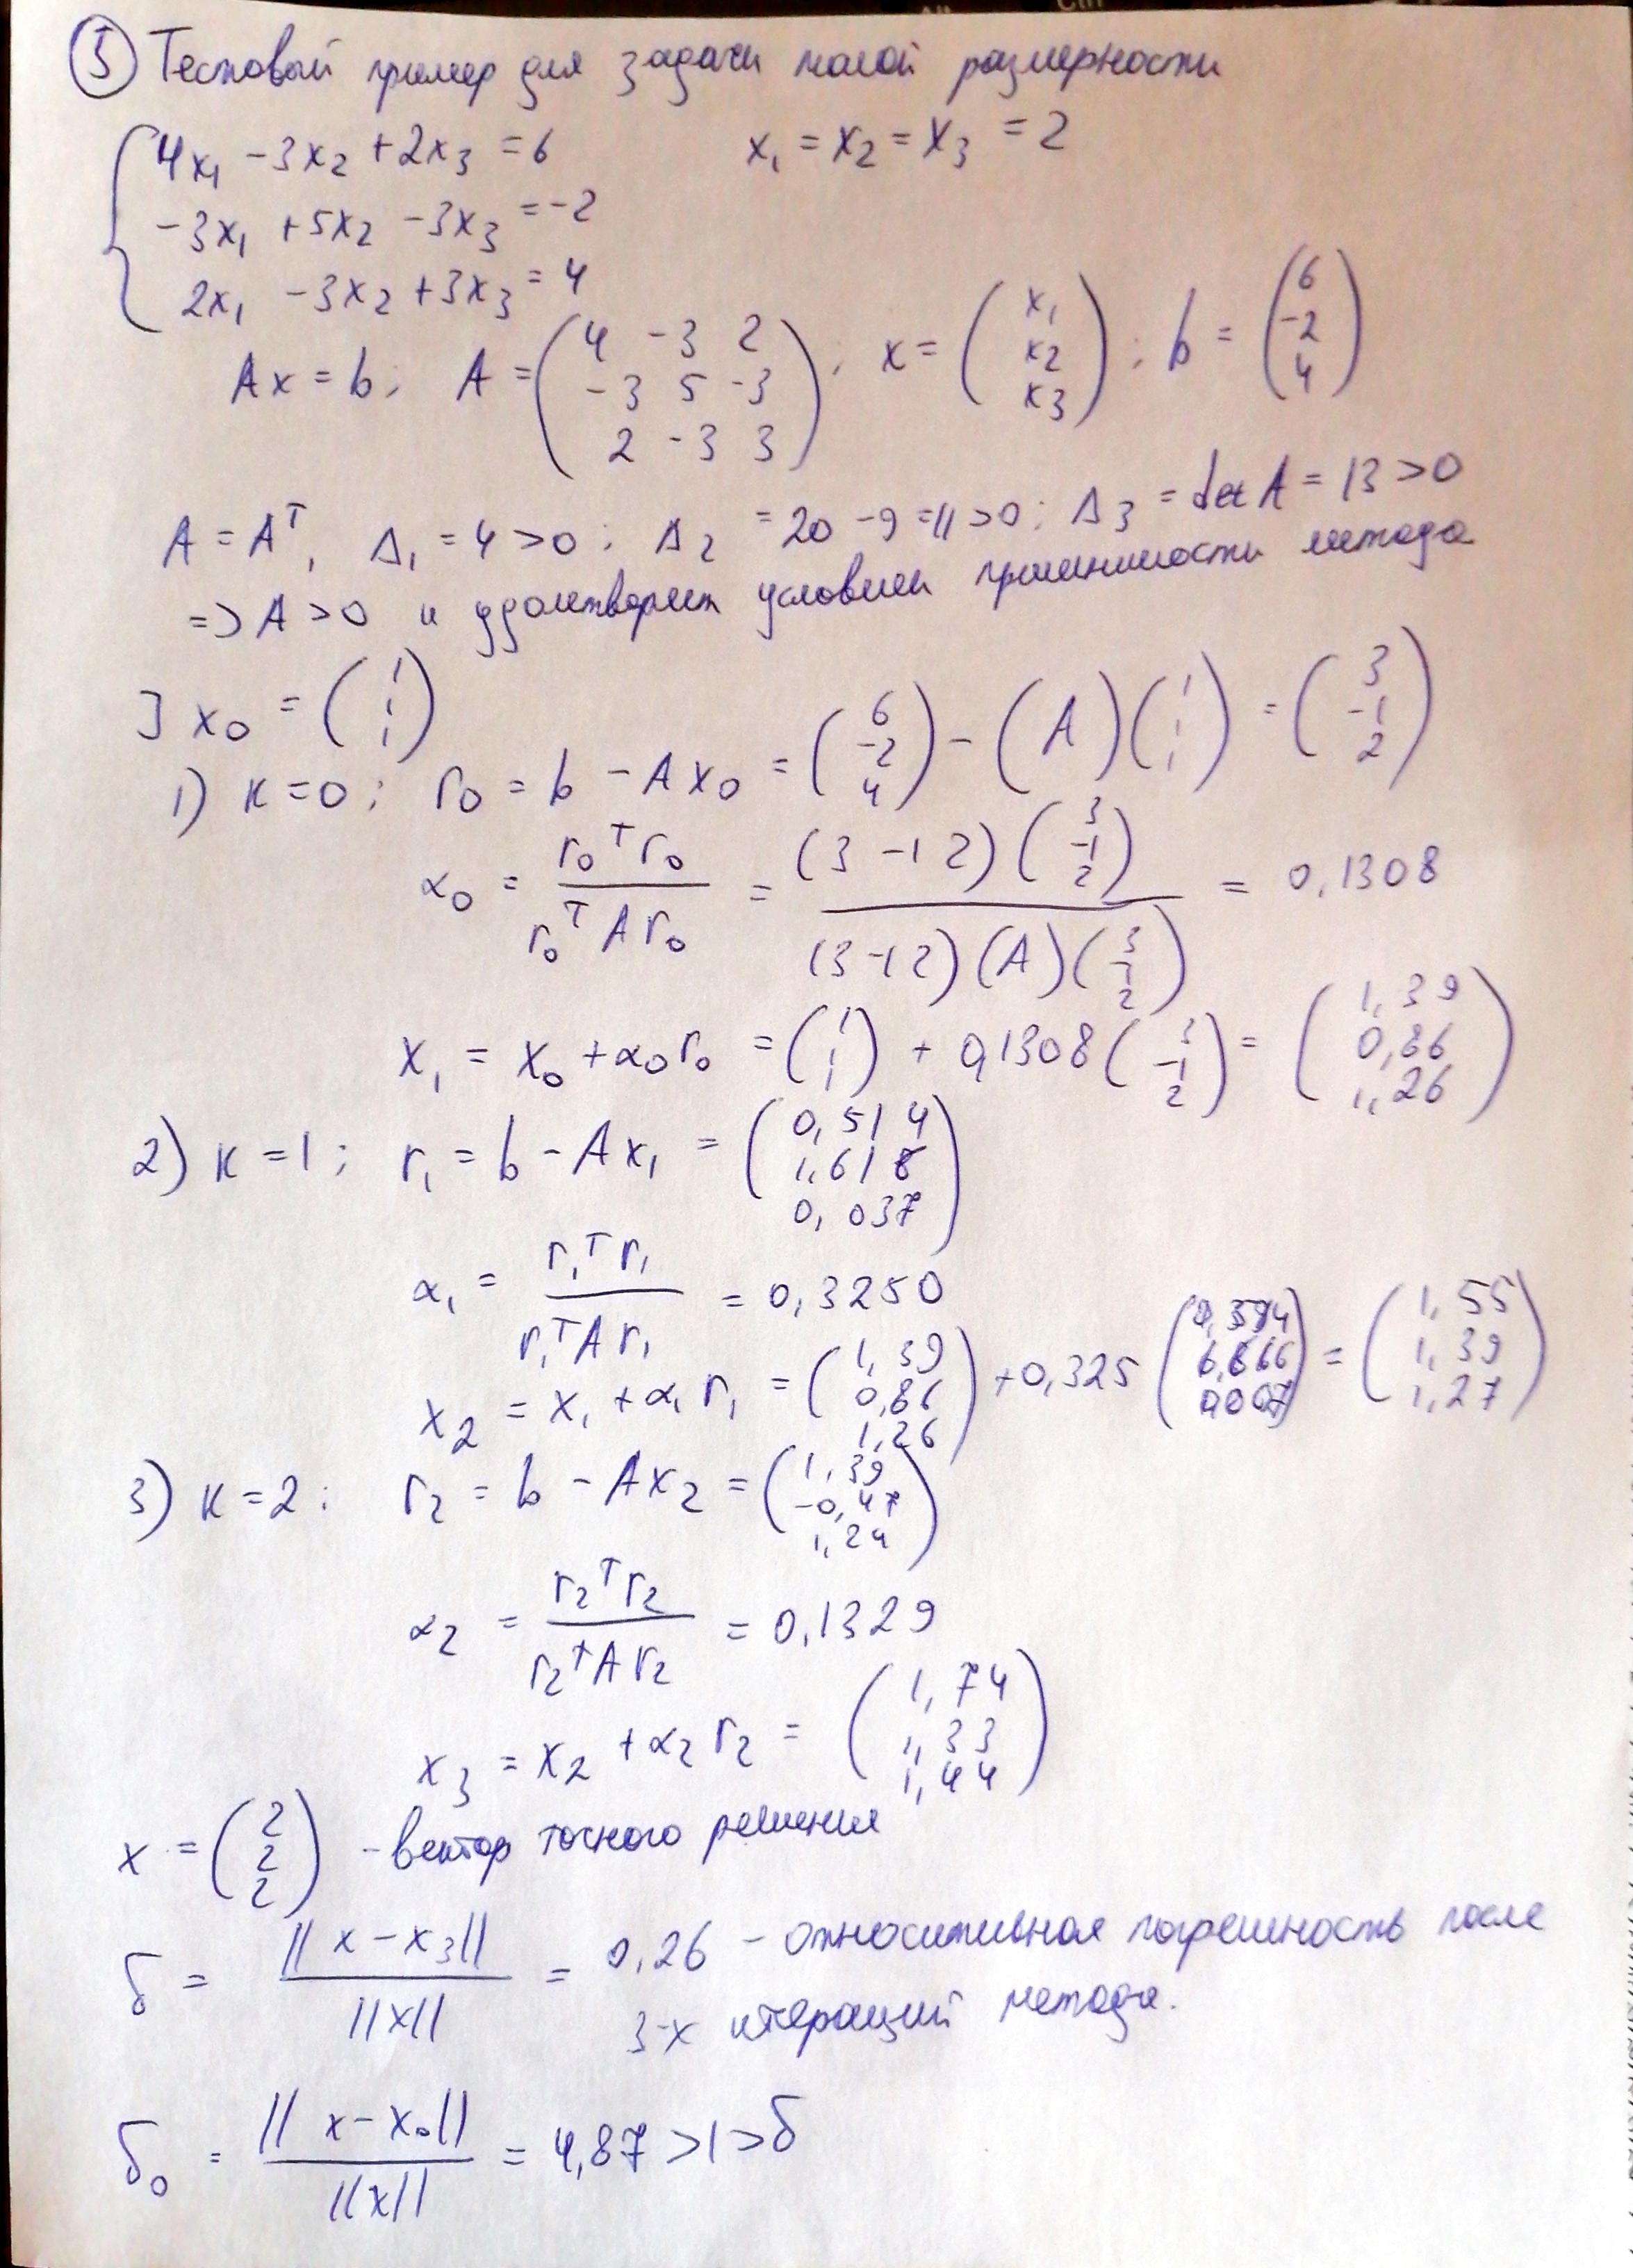 ⑤ Тестовый пример для задачи малой размерности
4x₁ - 3x₂ + 2x₃ = 6      x₁ = x₂ = x₃ = 2
-3x₁ + 5x₂ - 3x₃ = -2
2x₁ - 3x₂ + 3x₃ = 4
Ax = b; A = (4 -3 2; -3 5 -3; 2 -3 3); x = (x₁ x₂ x₃); b = (6 -2 4)
A = Aᵀ, Δ₁ = 4 > 0; Δ₂ = 20 - 9 = 11 > 0; Δ₃ = det A = 13 > 0
=> A > 0 и удовлетворяет условием применимости метода
] x₀ = (1 1 1)
1) k = 0; r₀ = b - Ax₀ = (6 -2 4) - (A)(1 1 1) = (3 -1 2)
α₀ = r₀ᵀr₀ / r₀ᵀAr₀ = (3 -1 2)(3 -1 2) / (3 -1 2)(A)(3 -1 2) = 0,1308
x₁ = x₀ + α₀r₀ = (1 1 1) + 0,1308(3 -1 2) = (1,39 0,86 1,26)
2) k = 1; r₁ = b - Ax₁ = (0,514 1,618 0,037)
α₁ = r₁ᵀr₁ / r₁ᵀAr₁ = 0,3250
x₂ = x₁ + α₁r₁ = (1,39 0,86 1,26) + 0,325 = (1,55 1,39 1,27)
3) k = 2: r₂ = b - Ax₂ = (1,39 -0,47 1,24)
α₂ = r₂ᵀr₂ / r₂ᵀAr₂ = 0,1329
x₃ = x₂ + α₂r₂ = (1,74 1,33 1,44)
x = (2 2 2) - вектор точного решения
δ = ||x - x₃|| / ||x|| = 0,26 - относительная погрешность после
3-х итераций метода.
δ₀ = ||x - x₀|| / ||x|| = 4,87 > 1 > δ